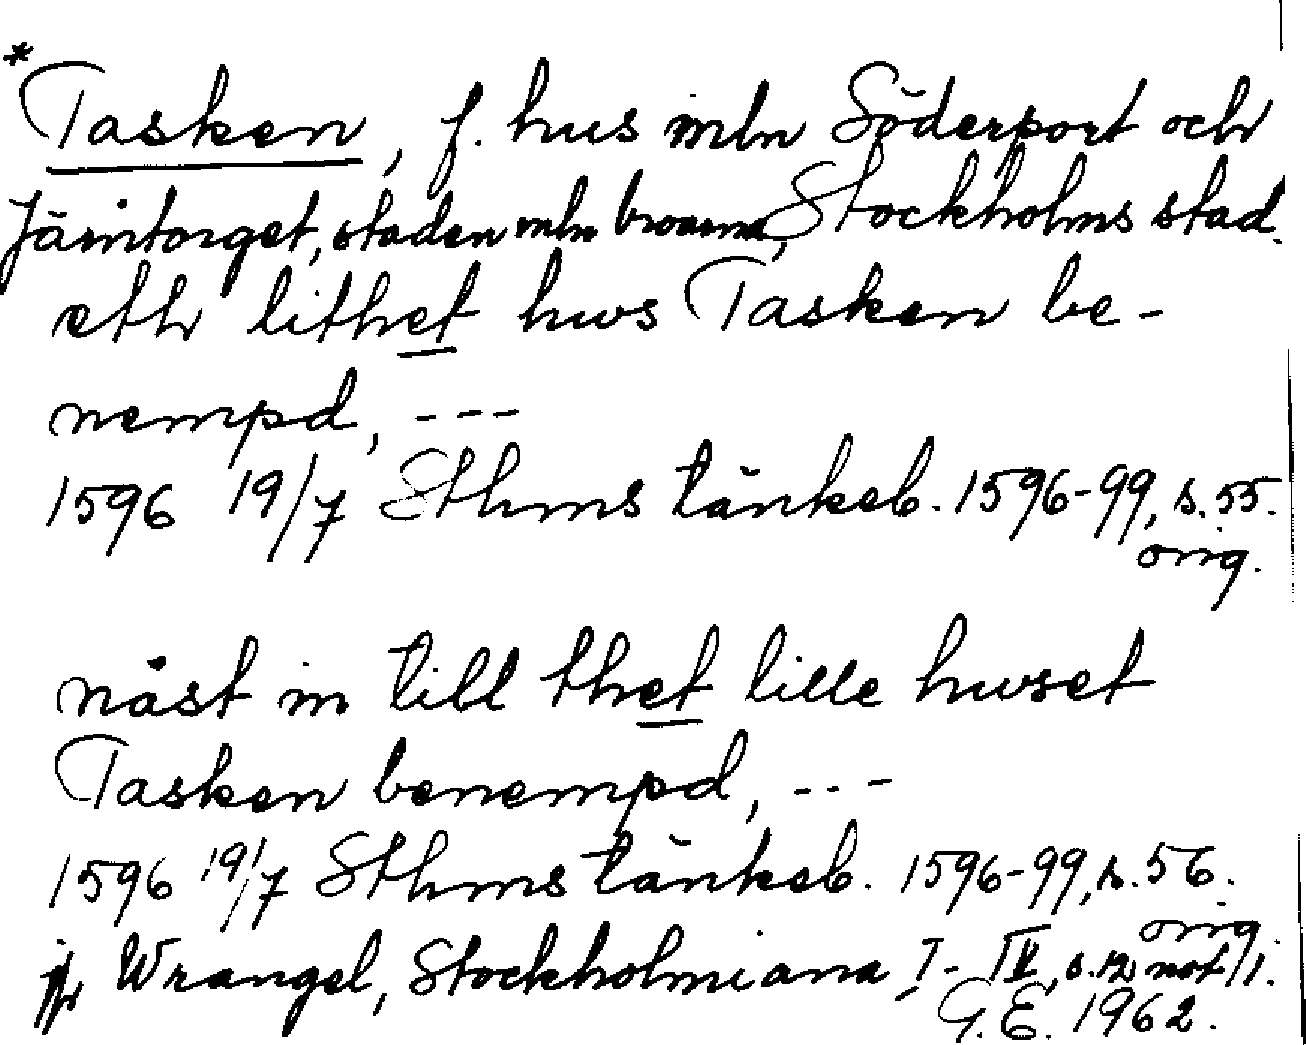 *Tasken, f. hus mln Söderport och
Järntorget, staden mln broarna, Stockholms stad.
eth lithet hws Tasken be-
nempd, ---
1596 19/7 Sthms tänkeb. 1596-99, s. 55.
orig.
näst in till thet lille hwset
Tasken benempd, ---
1596 19/7 Sthms tänkeb. 1596-99, s. 56.
orig.
jfr Wrangel, Stockholmiana I-IV, s. 12 not 1.
G.E. 1962.